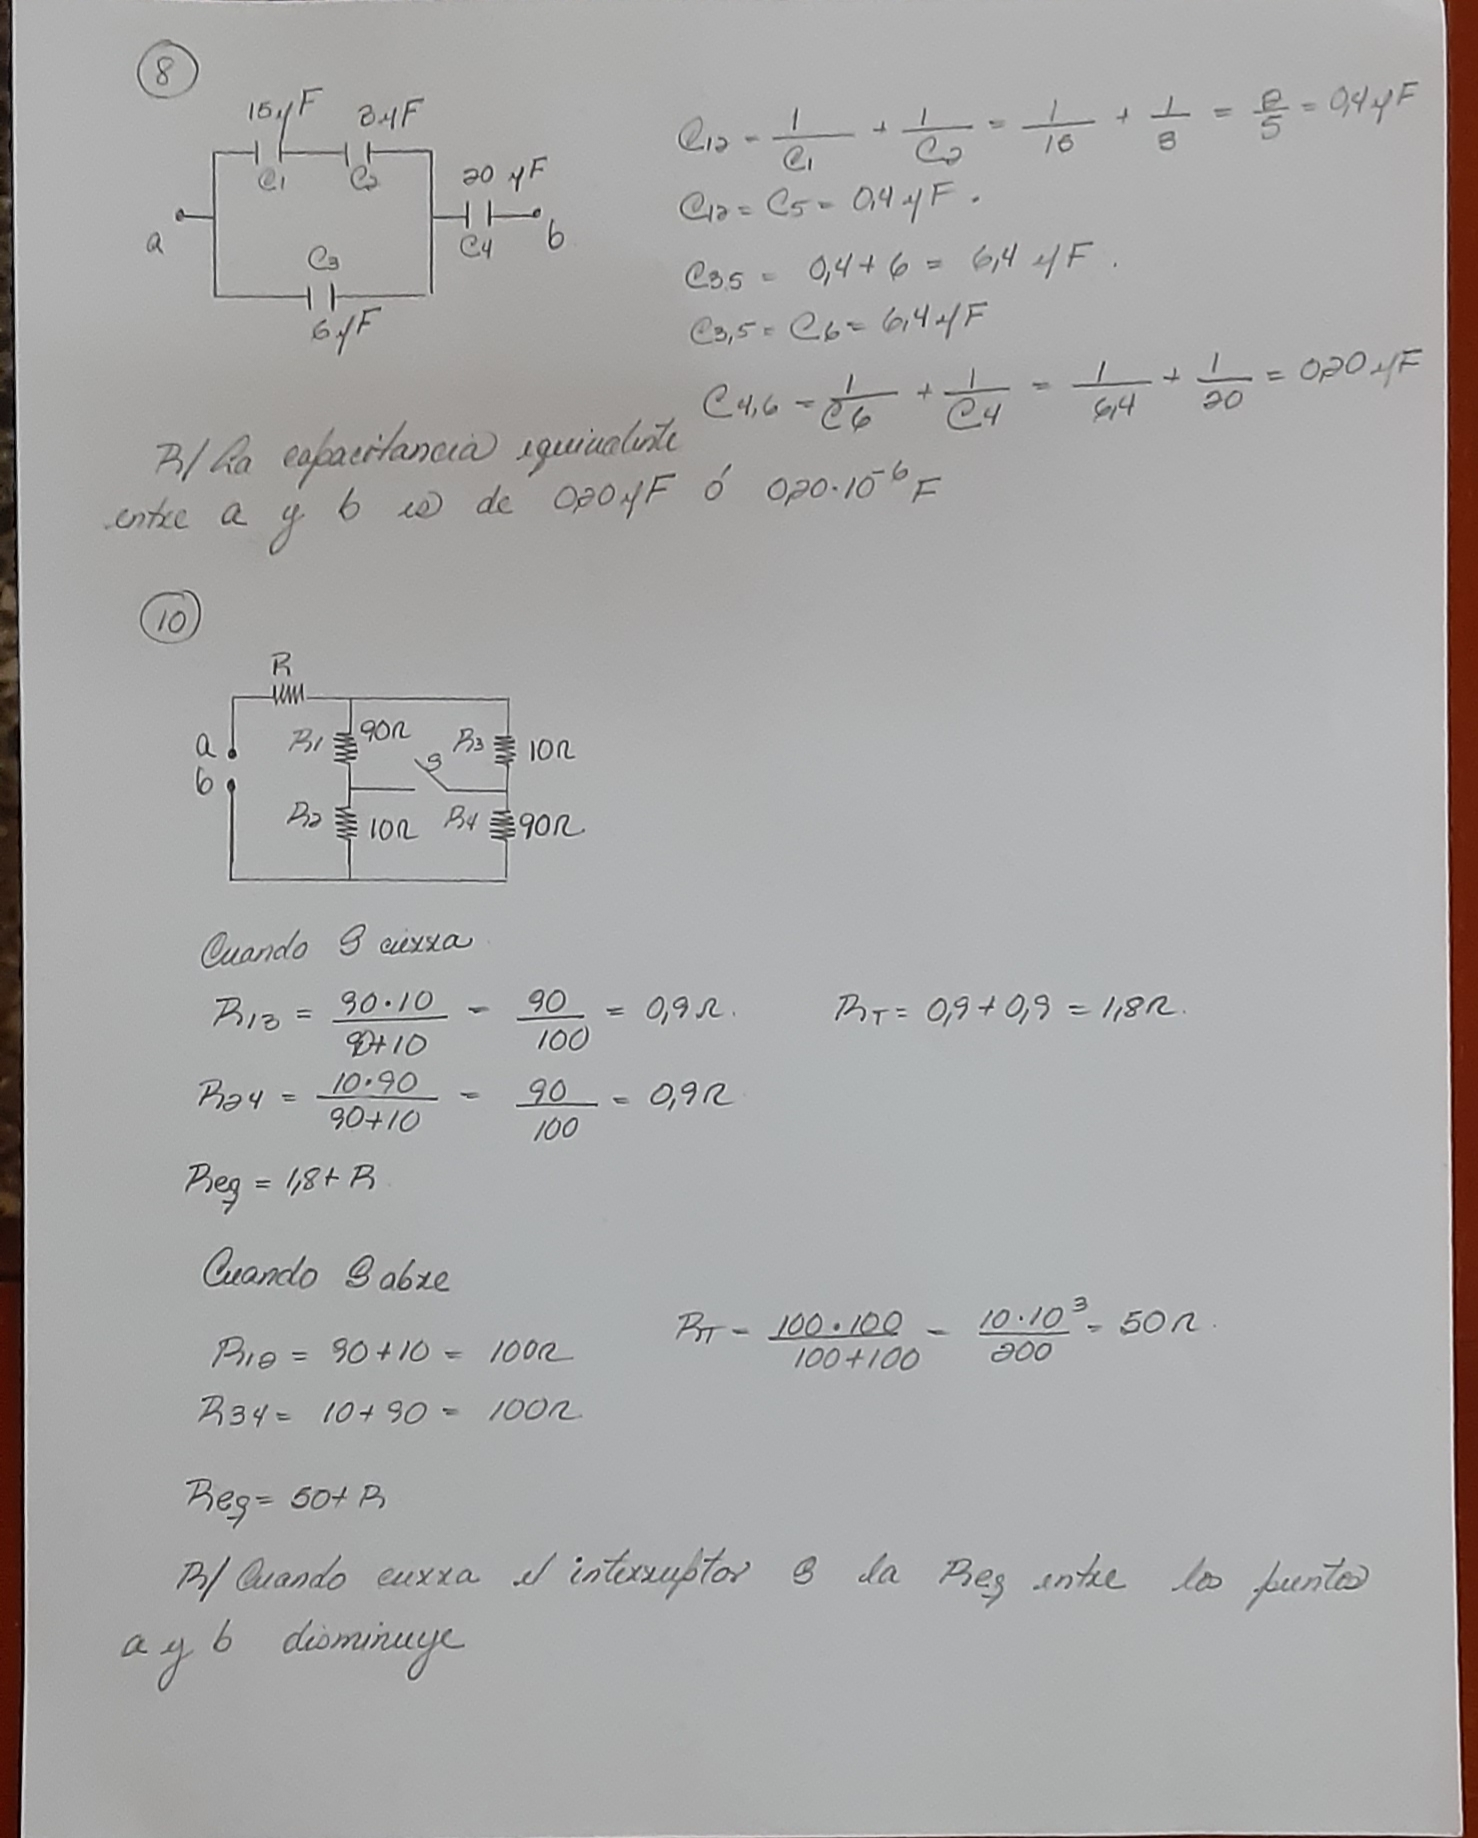 8
15 μF 3 μF
C1 C2
20 μF
a C4 b
C3
6 μF
C12 = 1/C1 + 1/C2 = 1/15 + 1/3 = 2/5 = 0,4 μF
C12 = C5 = 0,4 μF.
C3,5 = 0,4 + 6 = 6,4 μF.
C3,5 = C6 = 6,4 μF
C4,6 = 1/C6 + 1/C4 = 1/6,4 + 1/20 = 0,20 μF
R/ La capacitancia equivalente
entre a y b es de 0,20 μF ó 0,20·10⁻⁶ F
10
R
a R1 90Ω S R3 10Ω
b R2 10Ω R4 90Ω
Cuando S cierra
R13 = 90·10/90+10 = 90/100 = 0,9Ω. RT = 0,9 + 0,9 = 1,8Ω.
R24 = 10·90/90+10 = 90/100 = 0,9Ω
Req = 1,8 + R
Cuando S abre
R12 = 90+10 = 100Ω RT = 100·100/100+100 = 10·10³/200 = 50Ω.
R34 = 10+90 = 100Ω
Req = 50+R
R/ Cuando cierra el interruptor S la Req entre los puntos
a y b disminuye